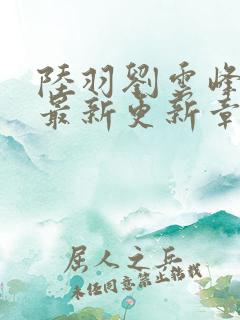 陸羽劉雲峰
最新更新章
屈人之兵
未经同意禁止转载